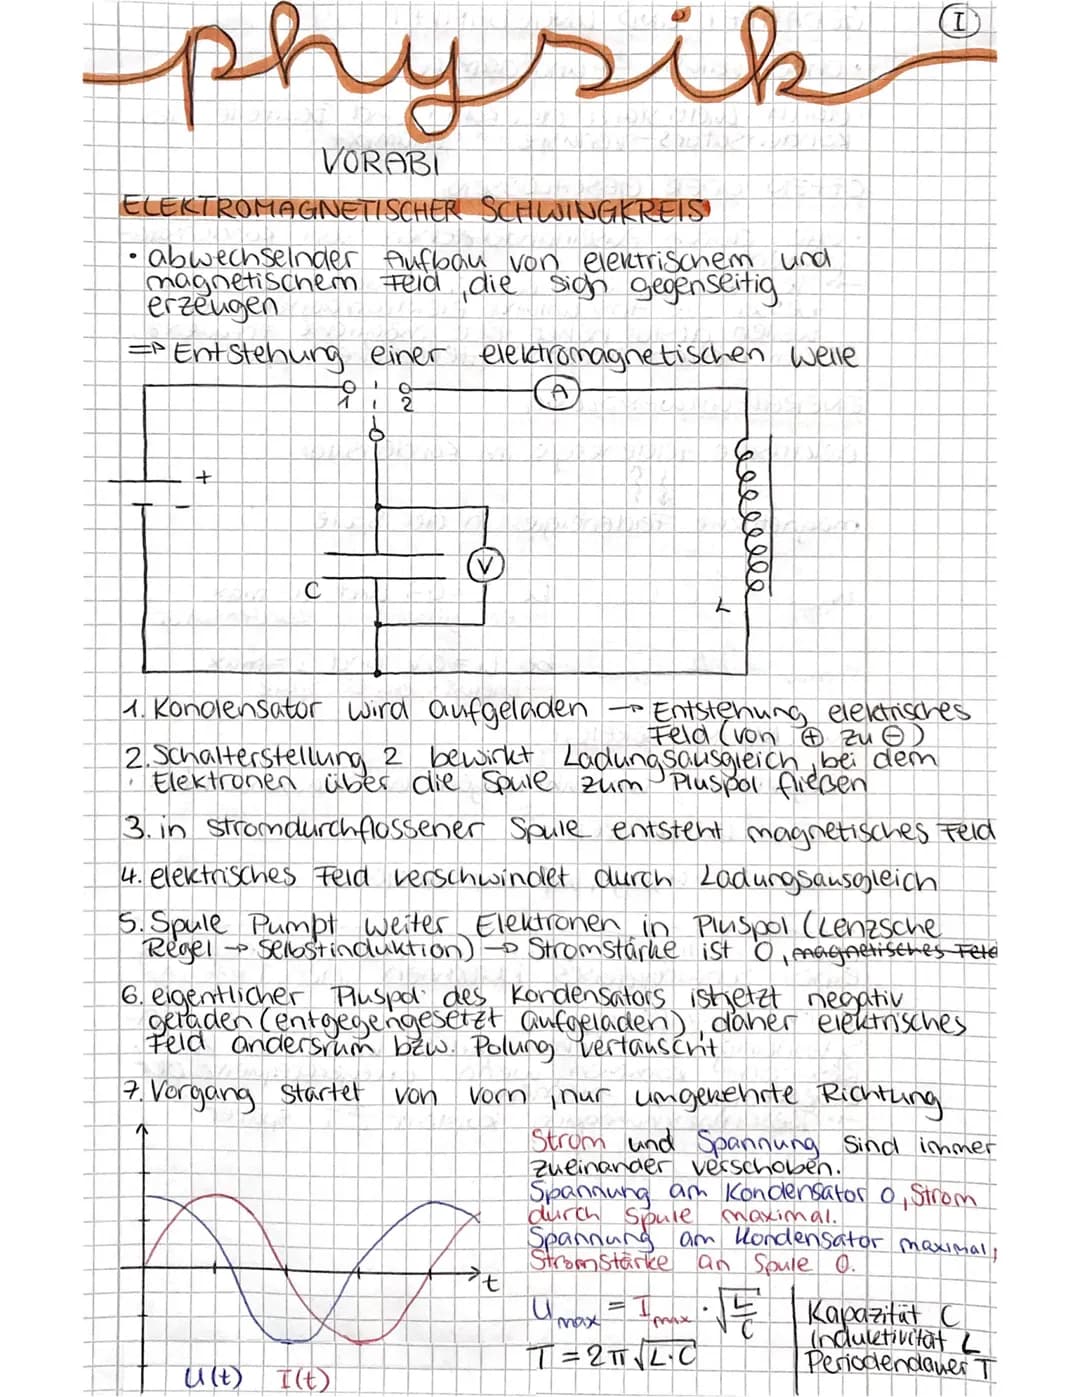 I
physik
VORABI
ELEKTROMAGNETISCHER SCHWINGKREIS
• abwechselnder Aufbau von elektrischem und
magnetischem Feld, die sich gegenseitig
erzeugen
=> Entstehung einer elektromagnetischen Welle
1 2 A
+
-
V
C
L
1. Kondensator wird aufgeladen → Entstehung elektrisches
Feld (von ⊕ zu ⊖)
2. Schalterstellung 2 bewirkt Ladungsausgleich, bei dem
Elektronen über die Spule zum Pluspol fließen
3. in stromdurchflossener Spule entsteht magnetisches Feld
4. elektrisches Feld verschwindet durch Ladungsausgleich
5. Spule Pumpt weiter Elektronen in Pluspol (Lenzsche
Regel → Selbstinduktion) → Stromstärke ist 0, magnetisches Feld
6. eigentlicher Pluspol des Kondensators ist jetzt negativ
geladen (entgegengesetzt aufgeladen), daher elektrisches
Feld andersrum bzw. Polung vertauscht
7. Vorgang startet von vorn, nur umgekehrte Richtung
Strom und Spannung sind immer
zueinander verschoben.
Spannung am Kondensator 0, Strom
durch Spule maximal.
Spannung am Kondensator maximal,
Stromstärke an Spule 0.
t
U max = I max · √L/C
T = 2π √L·C
Kapazität C
Induktivität L
Periodendauer T
U(t) I(t)